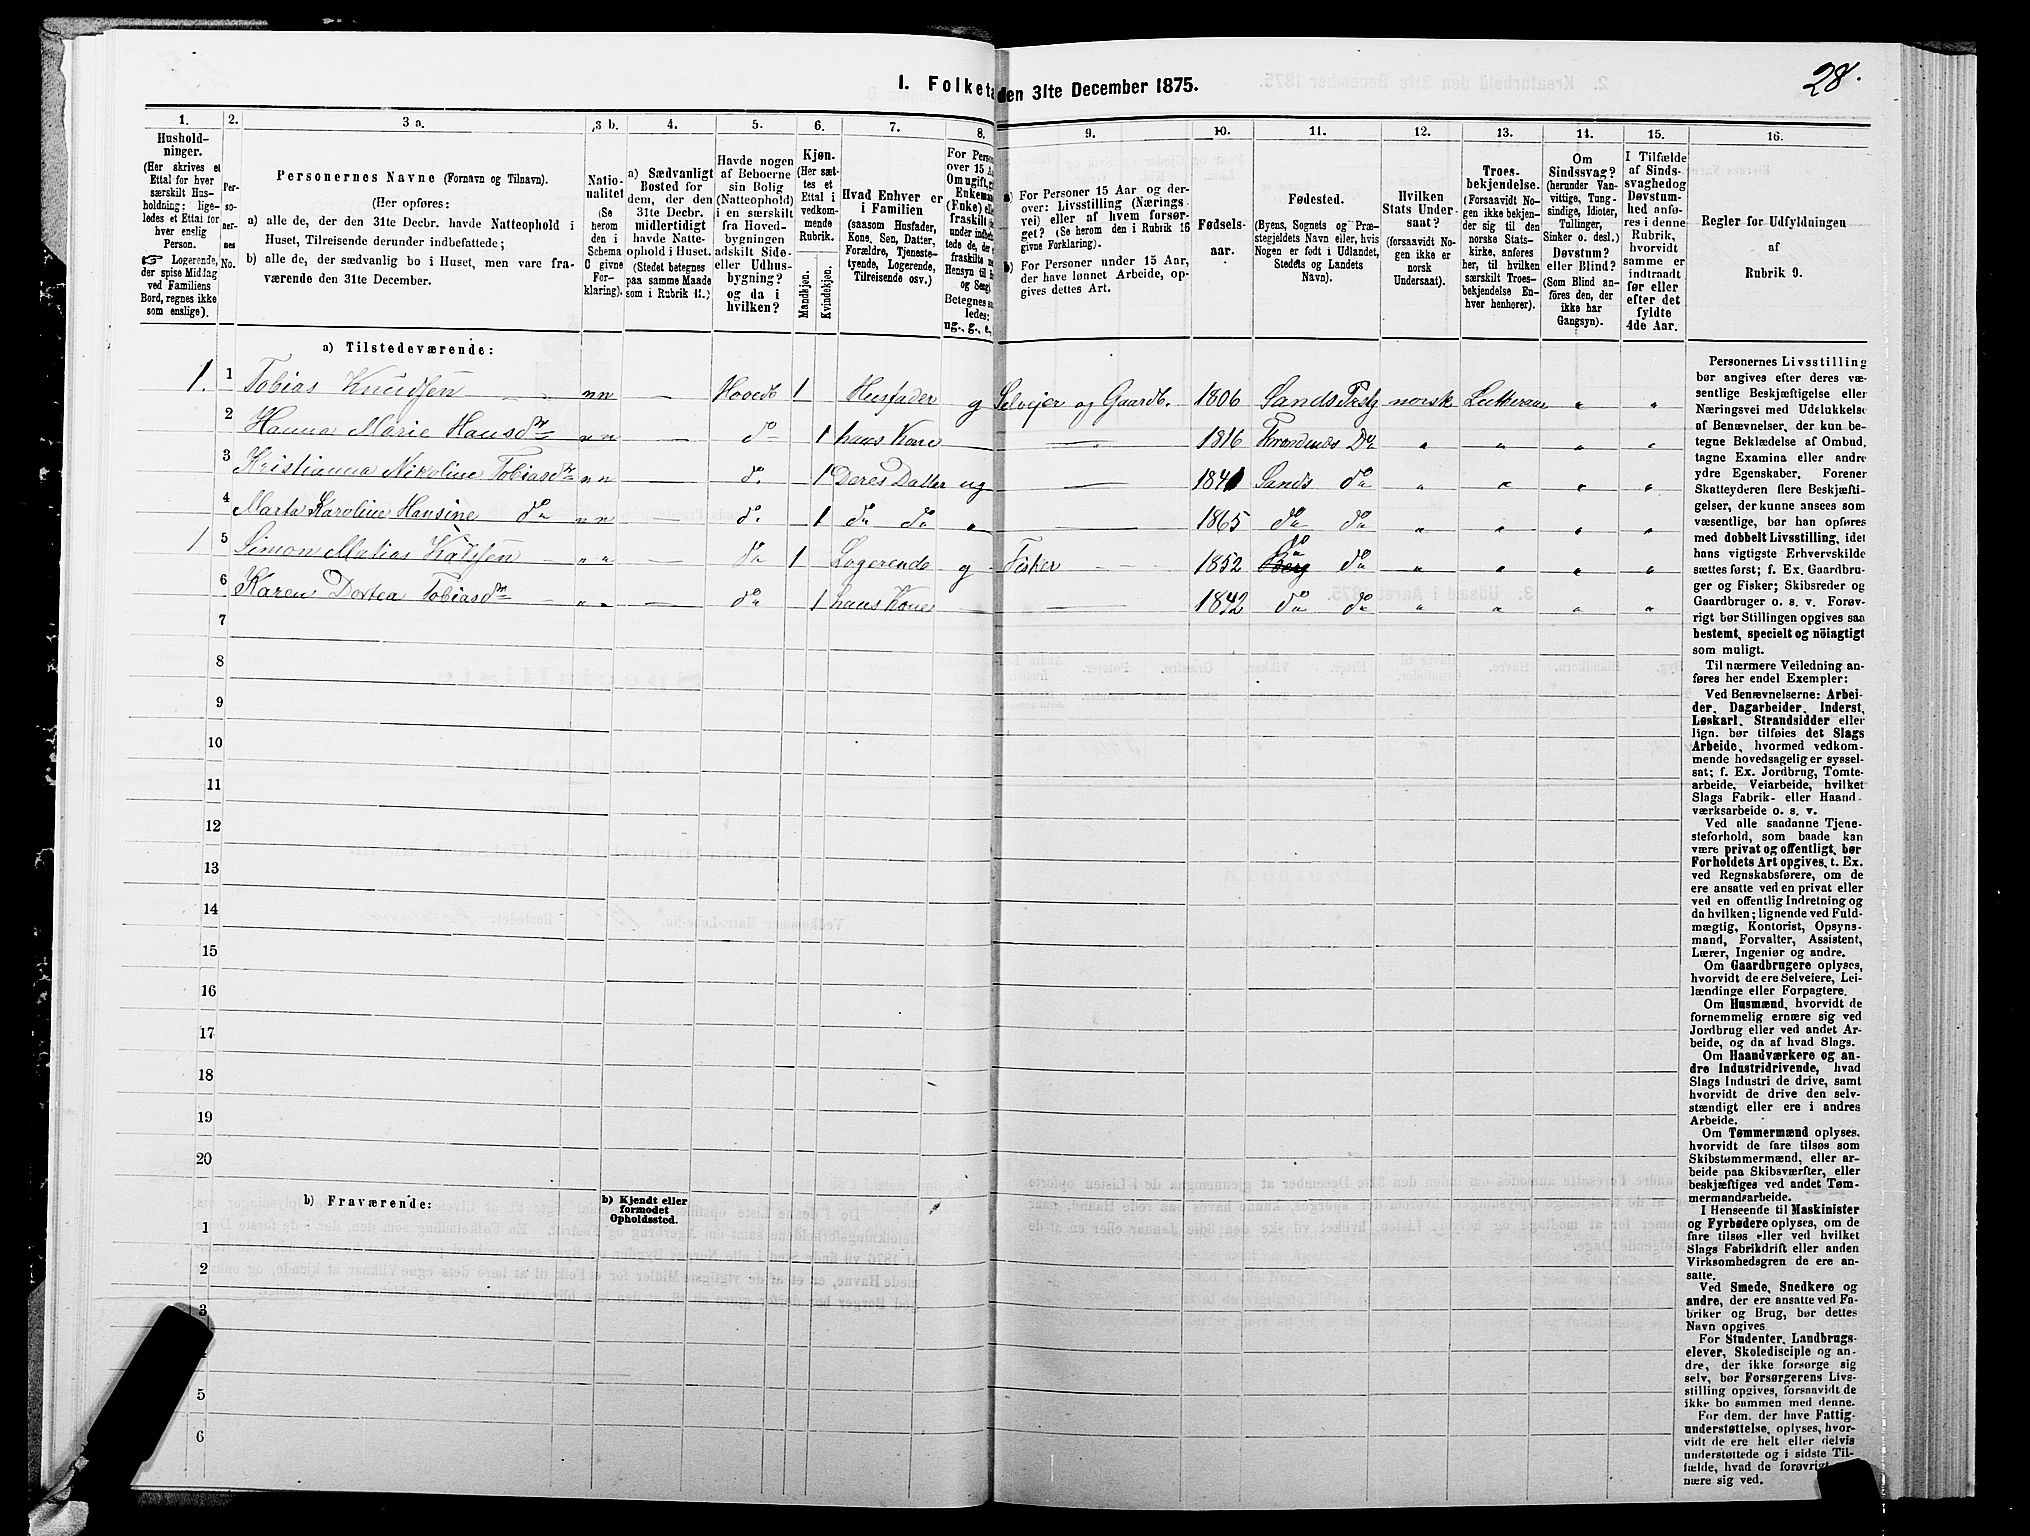 28.
I. Folketa
den 31te December 1875.
1. 2. 3 a. 3 b. 4. 5. 6. 7. 8. 9. 10. 11. 12. 13. 14. 15. 16.
Hushold-
ninger.
(Her skrives et
Ettal for hver
særskilt Hus-
holdning; lige-
ledes et Ettal for
hver enslig
Person.
☞ Logerende,
der spise Middag
ved Familiens
Bord, regnes ikke
som enslige).
Per-
so-
ner-
nes
No.
Personernes Navne (Fornavn og Tilnavn).
(Her opføres:
a) alle de, der den 31te Decbr. havde Natteophold i
Huset, Tilreisende derunder indbefattede;
b) alle de, der sædvanlig bo i Huset, men vare fra-
værende den 31te December.
Natio-
nalitet
(Se
herom
den i
Schema
C givne
For-
klaring).
a) Sædvanligt
Bosted for
dem, der den
31te Decbr.
midlertidigt
havde Natte-
ophold i Huset.
(Stedet betegnes
paa samme Maade
som i Rubrik 11.)
Havde nogen
af Beboerne
sin Bolig
(Natteophold)
i en særskilt
fra Hoved-
bygningen
adskilt Side-
eller Udhus-
bygning?
og da i
hvilken?
Kjøn.
(Her sæt-
tes et
Ettal i
vedkom-
mende
Rubrik.
Mandkjøn.
Kvindekjøn.
Hvad Enhver er
i Familien
(saasom Husfader,
Kone, Søn, Datter,
Forældre, Tjeneste-
tyende, Logerende,
Tilreisende osv.)
For Person
over 15 Aa
Om ugift, g
Enkema
(Enke) el
fraskilt
Betegnes sa
ledes:
ug., g., e.,
a) For Personer 15 Aar og der-
over: Livsstilling (Nærings
vei) eller af hvem forsør-
get? (Se herom den i Rubrik 16
givne Forklaring).
b) For Personer under 15 Aar,
der have lønnet Arbeide, op-
gives dettes Art.
Fødsels-
aar.
Fødested.
(Byens, Sognets og Præ-
stegjeldets Navn eller, hvis
Nogen er født i Udlandet,
Stedets og Landets
Navn).
Hvilken
Stats Under-
saat?
(forsaavidt No-
gen ikke er
norsk
Undersaat).
Troes-
bekjendelse.
(Forsaavidt No-
gen ikke bekjen-
der sig til den
norske Stats-
kirke, anføres
her, til hvilken
særskilt Troes-
bekjendelse En-
hver henhører).
Om
Sindssvag?
(herunder Van-
vittige, Tung-
sindige, Idioter,
Tullinger,
Sinker o. desl.)
Døvstum?
eller Blind?
(Som Blind an-
føres den, der
ikke har
Gangsyn).
I Tilfælde
af Sinds-
svaghed og
Døvstum-
hed anfø-
res i denne
Rubrik,
hvorvidt
samme er
indtraadt
før eller
efter det
fyldte
4de Aar.
Regler for Udfyldningen
af
Rubrik 9.
a) Tilstedeværende:
1. 1 Tobias Knudsen nn — Hovedb 1 Husfader g Selveier og Gaardb. 1806 Sands Prstg norsk Lutheraner " "
2 Hanna Marie Hansdtr nn — do 1 hans Kone — 1816 Trondenæs Do " " " "
3 Kristianna Nikoline Tobiasdtr nn — do 1 Deres Datter ug — 1841 Sands do " " " "
4 Marta Karoline Hansine do nn — do 1 do do " — 1865 do do " " " "
1 5 Simon Matias " " — do 1 Logerende g Fisker — 1852 do Berg do " " " "
6 Karen Dortea Tobiasdtr " " — do 1 hans Kone — 1842 do do " " " "
7
8
9
10
11
12
13
14
15
16
17
18
19
20
b) Fraværende:
b) Kjendt eller
formodet
Opholdssted.
1
2
3
5
6
Personernes Livsstilling
bør angives efter deres væ-
sentlige Beskjæftigelse eller
Næringsvei med Udelukkelse
af Benævnelser, der kun be-
tegne Beklædelse af Ombud,
tagne Examina eller andre
ydre Egenskaber. Forener
Skatteyderen flere Beskjæfti-
gelser, der kunne ansees som
væsentlige, bør han opføres
med dobbelt Livsstilling, idet
hans vigtigste Erhvervskilde
sættes først; f. Ex. Gaardbru-
ger og Fisker; Skibsreder og
Gaardbruger o. s. v. Forøv-
rigt bør Stillingen opgives saa
bestemt, specielt og nöiagtigt
som muligt.
Til nærmere Veiledning an-
føres her endel Exempler:
Ved Benævnelserne: Arbei-
der, Dagarbeider, Inderst,
Løskarl, Strandsidder eller
lign. bør tilføies det Slags
Arbeide, hvormed vedkom-
mende hovedsagelig er syssel-
sat; f. Ex. Jordbrug, Tomte-
arbeide, Veiarbeide, hvilket
Slags Fabrik- eller Haand-
værksarbeide o. s. v.
Ved alle saadanne Tjene-
steforhold, som baade kan
være privat og offentligt, bør
Forholdets Art opgives, t. Ex.
ved Regnskabsførere, om de
ere ansatte ved en privat eller
ved en offentlig Indretning og
da hvilken; lignende ved Fuld-
mægtig, Kontorist, Opsyns-
mand, Forvalter, Assistent,
Lærer, Ingeniør og andre.
Om Gaardbrugere oplyses,
hvorvidt de ere Selveiere, Lei-
lændinge eller Forpagtere.
Om Husmænd, hvorvidt de
fornemmelig ernære sig ved
Jordbrug eller ved andet Ar-
beide, og da af hvad Slags.
Om Haandværkere og an-
dre Industridrivende, hvad
Slags Industri de drive, samt
hvorvidt de drive den selv-
stændigt eller ere i andres
Arbeide.
Om Tømmermænd oplyses,
hvorvidt de fare tilsøs som
Skibstømmermænd, eller ar-
beide paa Skibsværfter, eller
beskjæftiges ved andet Tøm-
mermandsarbeide.
I Henseende til Maskinister
og Fyrbødere oplyses, om de
fare tilsøs eller ved hvilket
Slags Fabrikdrift eller anden
Virksomhedsgren de ere an-
satte.
Ved Smede, Snedkere og
andre, der ere ansatte ved Fa-
briker og Brug, bør dettes
Navn opgives.
For Studenter, Landbrugs-
elever, Skoledisciple og an-
dre, der ikke forsørge sig
selv, bør Forsørgerens Livs-
stilling opgives, forsaavidt de
ikke bo sammen med denne.
For dem, der have Fattig-
understøttelse, oplyses, hvor-
vidt de ere helt eller delvis
understøttede og i sidste Til-
fælde, hvad de forøvrigt
nære sig ved.